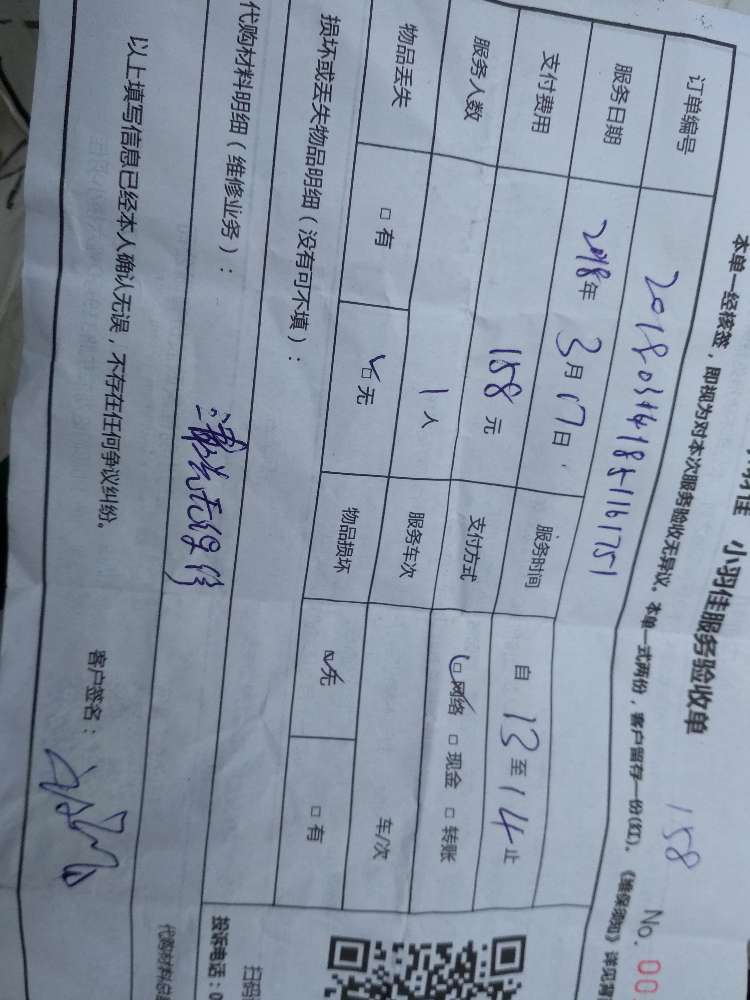 小羽佳服务验收单
158
No. 00
本单一经核签，即视为对本次服务验收无异议。本单一式两份，客户留存一份(红)。《维保须知》详见背
订单编号 201803141851161751
服务日期 2018年3月17日 服务时间 自13至14止
支付费用 158元 支付方式 网络 □现金 □转账
服务人数 1人 服务车次 车/次
物品丢失 □有 □无 物品损坏 □无 □有
损坏或丢失物品明细（没有可不填）：
代购材料明细（维修业务）：
代购材料总
以上填写信息已经本人确认无误，不存在任何争议纠纷。
客户签名：
扫码
投诉电话：0